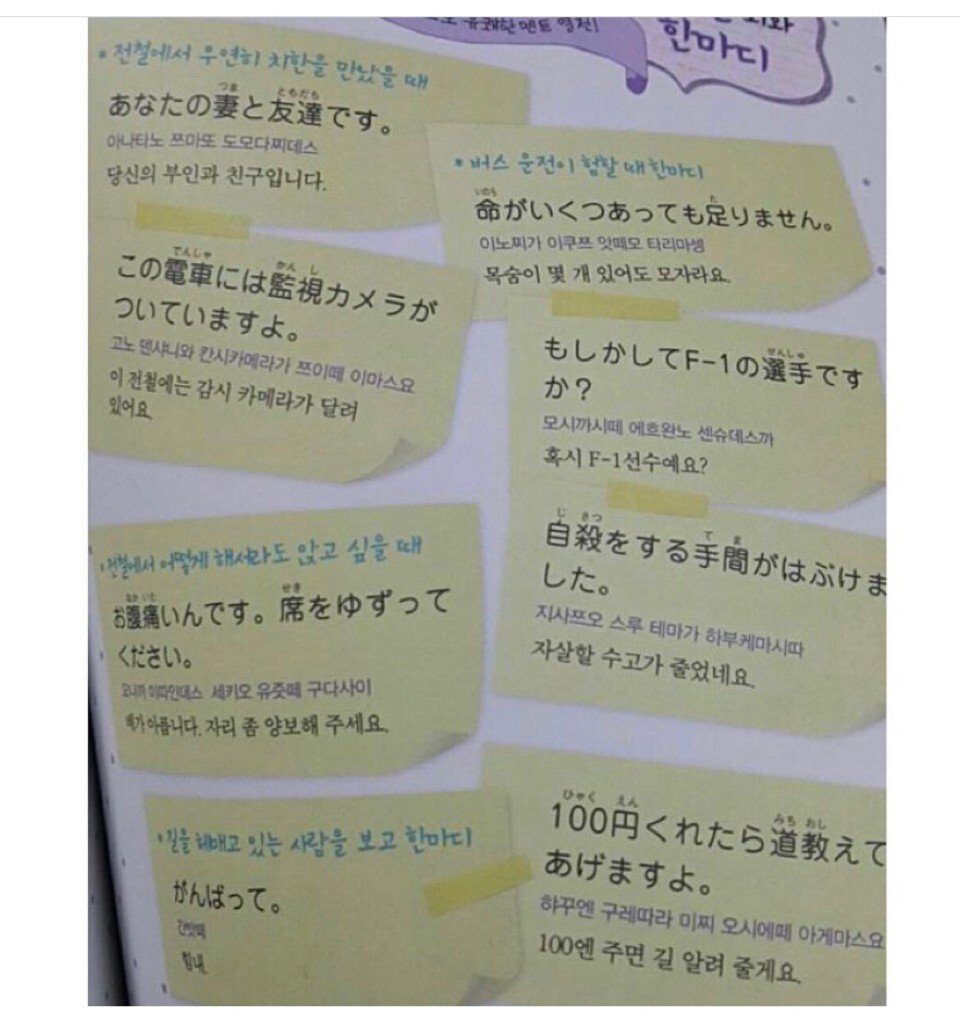 유쾌한 멘트 열전!
한마디
* 전철에서 우연히 치한을 만났을 때
あなたの妻と友達です。
つま ともだち
아나타노 쯔마또 도모다찌데스
당신의 부인과 친구입니다.
この電車には監視カメラが
でんしゃ かんし
ついていますよ。
고노 덴샤니와 칸시카메라가 쯔이떼 이마스요
이 전철에는 감시 카메라가 달려
있어요.
* 버스 운전이 험할 때 한마디
命がいくつあっても足りません。
いのち た
이노찌가 이쿠쯔 앗떼모 타리마셍
목숨이 몇 개 있어도 모자라요.
もしかしてF-1の選手です
せんしゅ
か？
모시까시떼 에흐완노 센슈데스까
혹시 F-1선수예요?
自殺をする手間がはぶけま
じさつ てま
した。
지사쯔오 스루 테마가 하부케마시따
자살할 수고가 줄었네요.
* 전철에서 어떻게 해서라도 앉고 싶을 때
お腹痛いんです。席をゆずって
なか いた せき
ください。
오나까 이따인데스 세키오 유즛떼 구다사이
배가 아픕니다. 자리 좀 양보해 주세요.
* 길을 헤매고 있는 사람을 보고 한마디
がんばって。
간밧떼
힘내.
100円くれたら道教えて
ひゃく えん みち おし
あげますよ。
햐꾸엔 구레따라 미찌 오시에떼 아게마스요
100엔 주면 길 알려 줄게요.